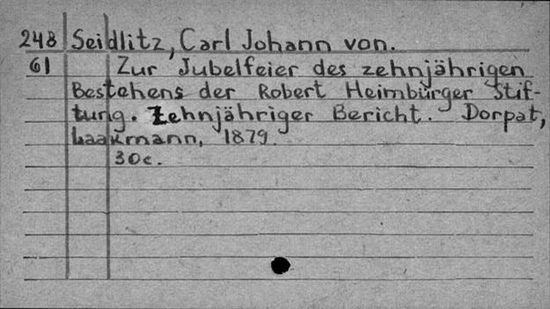 248 Seidlitz, Carl Johann von.
61 Zur Jubelfeier des zehnjährigen
Bestehens der Robert Heimbürger Stif-
tung. Zehnjähriger Bericht. Dorpat,
Laakmann, 1879.
30c.